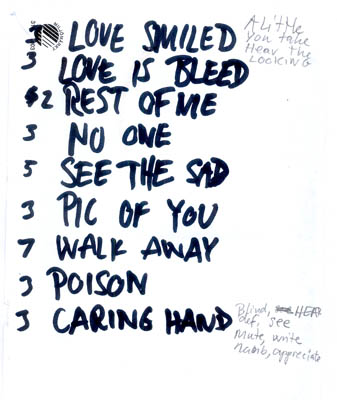 LOVE SMILED
3 LOVE IS BLEED
$2 REST OF ME
3 NO ONE
5 SEE THE SAD
3 PIC OF YOU
7 WALK AWAY
3 POISON
3 CARING HAND
A Little
You take
Hear the
LOOKING
Blind, HEAR
def, see
Mute, write
appreciate